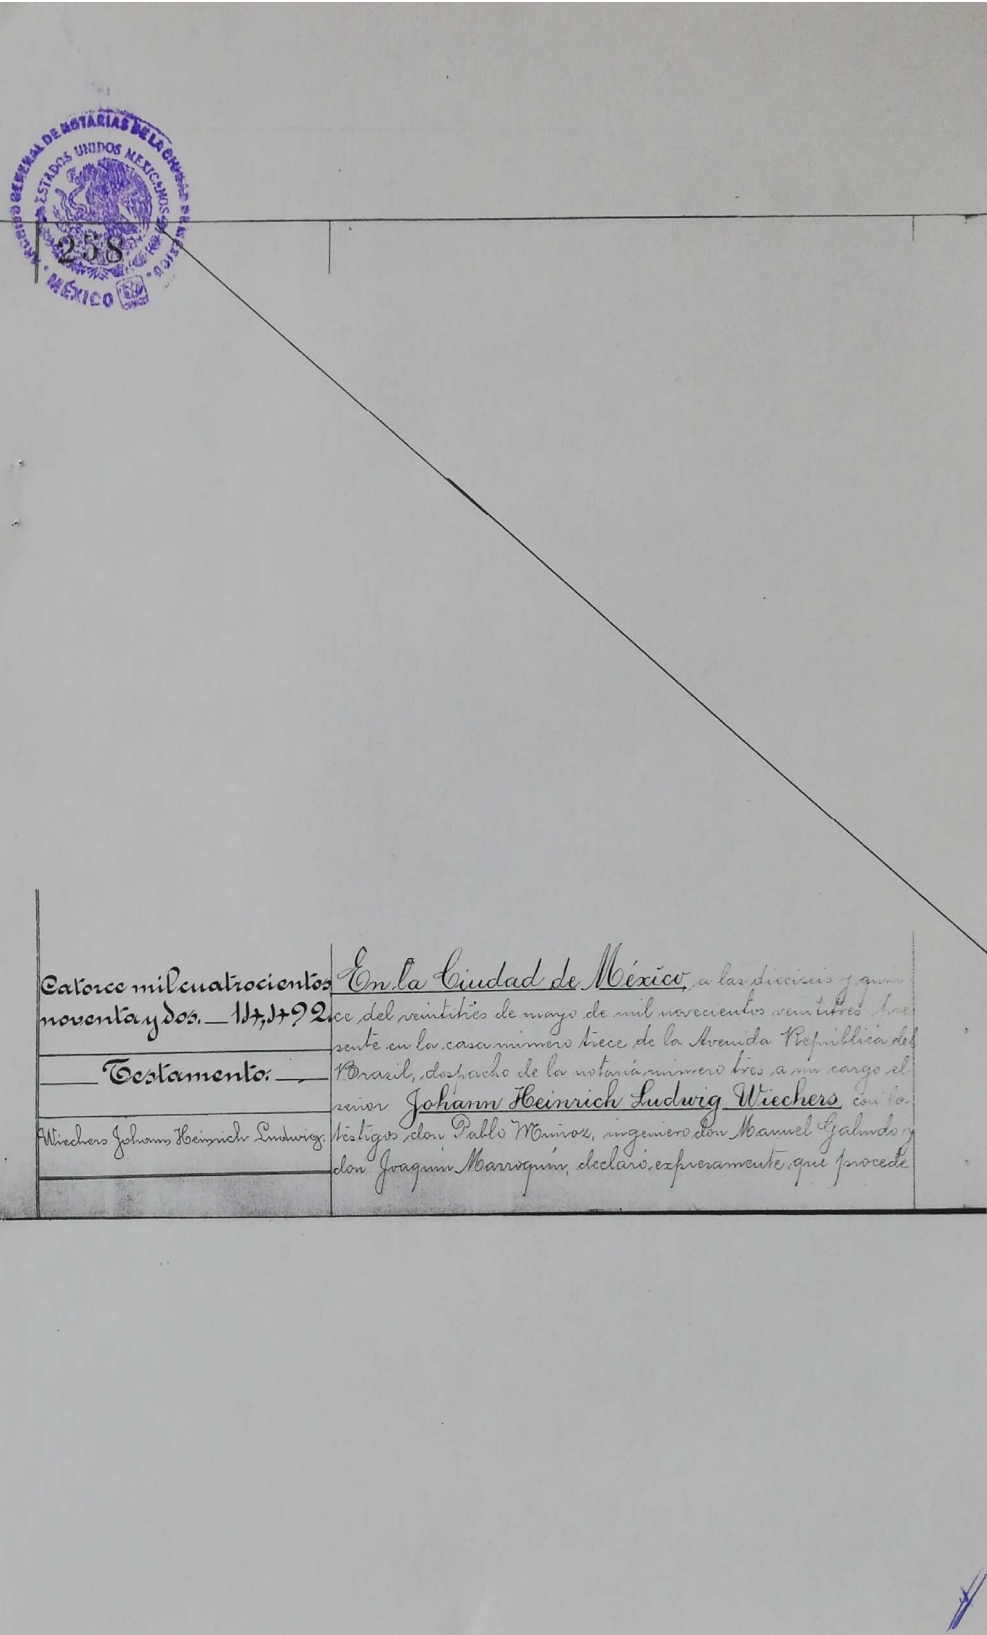 ARCHIVO GENERAL DE NOTARIAS DE LA CIUDAD DE MÉXICO
ESTADOS UNIDOS MEXICANOS
MÉXICO
258
Catorce mil cuatrocientos
noventa y dos. — 14,492.
Testamento.
Wiechers Johann Heinrich Ludwig.
En la Ciudad de México, a las dieciseis y quin
ce del veintitrés de mayo de mil novecientos veintitrés pre
sente en la casa número trece de la Avenida República del
Brasil, despacho de la notaría número tres a mi cargo el
señor Johann Heinrich Ludwig Wiechers, con los
testigos don Pablo Muñoz, ingeniero don Manuel Galindo y
don Joaquín Marroquín, declaró expresamente que procede